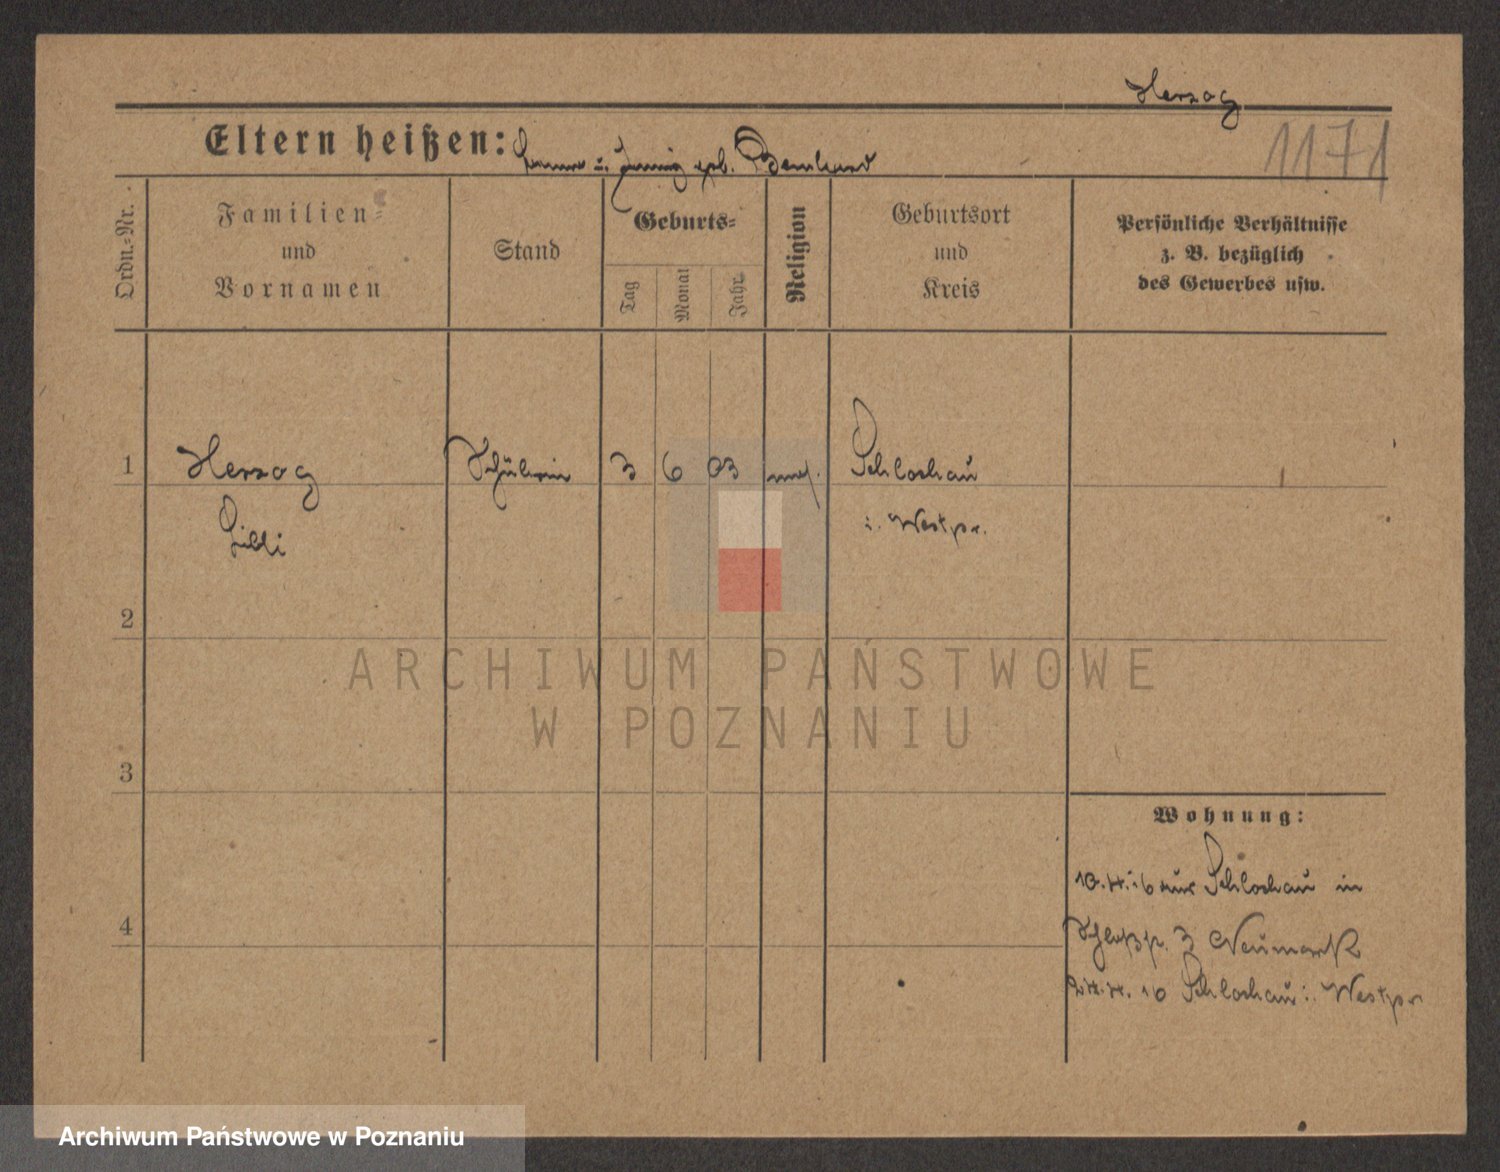 Herzog
1171
Eltern heißen: u. geb. Bernhard
Ordn.-Nr.
Familien- und Vornamen
Stand
Geburts-
Tag
Monat
Jahr
Religion
Geburtsort und Kreis
Persönliche Verhältnisse
z. B. bezüglich
des Gewerbes usw.
1 Herzog Schülerin 3 6 03 mos. Schlochau
i. Westpr.
2
ARCHIWUM PAŃSTWOWE
W POZNANIU
3
Wohnung:
aus Schlochau in
4
3 Neumark
10 Schlochau i. Westpr
Archiwum Państwowe w Poznaniu